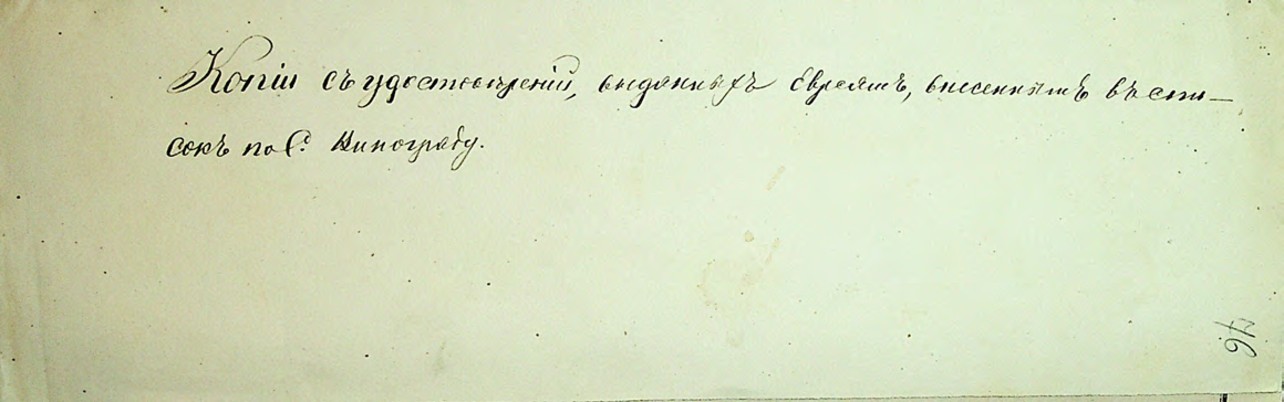 Копіи съ удостовѣреній, выданныхъ Евреямъ, внесеннымъ въ спи-
сокъ по С. Винограду.
46